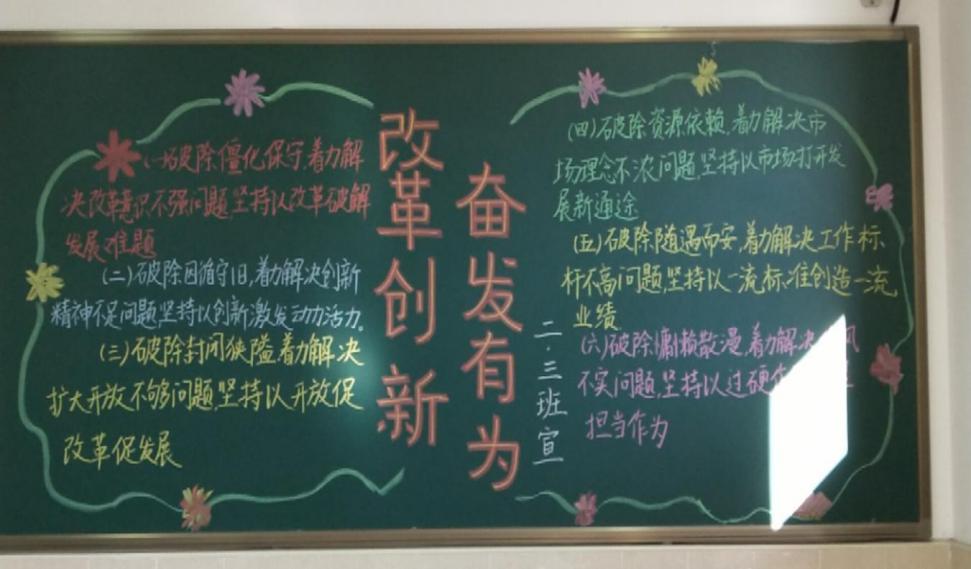 (一)破除僵化保守,着力解
决改革意识不强问题,坚持以改革破解
发展难题
(二)破除因循守旧,着力解决创新
精神不足问题,坚持以创新激发动力活力。
(三)破除封闭狭隘,着力解决
扩大开放不够问题,坚持以开放促
改革促发展
改革创新
奋发有为
二·三班宣
(四)破除资源依赖,着力解决市
场理念不浓问题,坚持以市场打开发
展新通途
(五)破除随遇而安,着力解决工作标
杆不高问题,坚持以一流标准创造一流
业绩
(六)破除慵懒散漫,着力解决 风
不实问题,坚持以过硬
担当作为